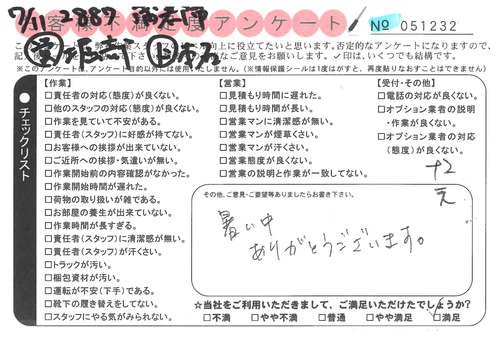 7/11 2887
お客様不満足度アンケート
No 051232
向上に役立てたいと思います。否定的なアンケートになりますので、
ご意見をお願いします。✓印は、いくつでも結構です。
※このアンケートは、アンケート目的以外には使用いたしません。(※情報保護シールは1度はがすと、再度貼りなおすことはできません。)
チェックリスト
【作業】
□責任者の対応(態度)が良くない。
□他のスタッフの対応(態度)が良くない。
□作業を見ていて不安がある。
□責任者(スタッフ)に好感が持てない。
□お客様への挨拶が出来ていない。
□ご近所への挨拶・気遣いが無い。
□作業開始前の内容確認がなかった。
□作業開始時間が遅れた。
□荷物の取り扱いが雑である。
□お部屋の養生が出来ていない。
□作業時間が長すぎる。
□責任者(スタッフ)に清潔感が無い。
□責任者(スタッフ)が汗くさい。
□トラックが汚い。
□梱包資材が汚い。
□運転が不安(下手)である。
□靴下の履き替えをしてない。
□スタッフにやる気がみられない。
【営業】
□見積もり時間に遅れた。
□見積もり時間が長い。
□営業マンに清潔感が無い。
□営業マンが煙草くさい。
□営業マンが汗くさい。
□営業態度が良くない。
□営業の説明と作業が一致してない。
【受付・その他】
□電話の対応が良くない。
□オプション業者の説明
・作業が良くない。
□オプション業者の対応
(態度)が良くない。
その他、ご意見・ご要望等ありましたらお書き下さい。
暑い中
ありがとうございます。
☆当社をご利用いただきまして、ご満足いただけたでしょうか?
□不満 □やや不満 □普通 □やや満足 ☑満足